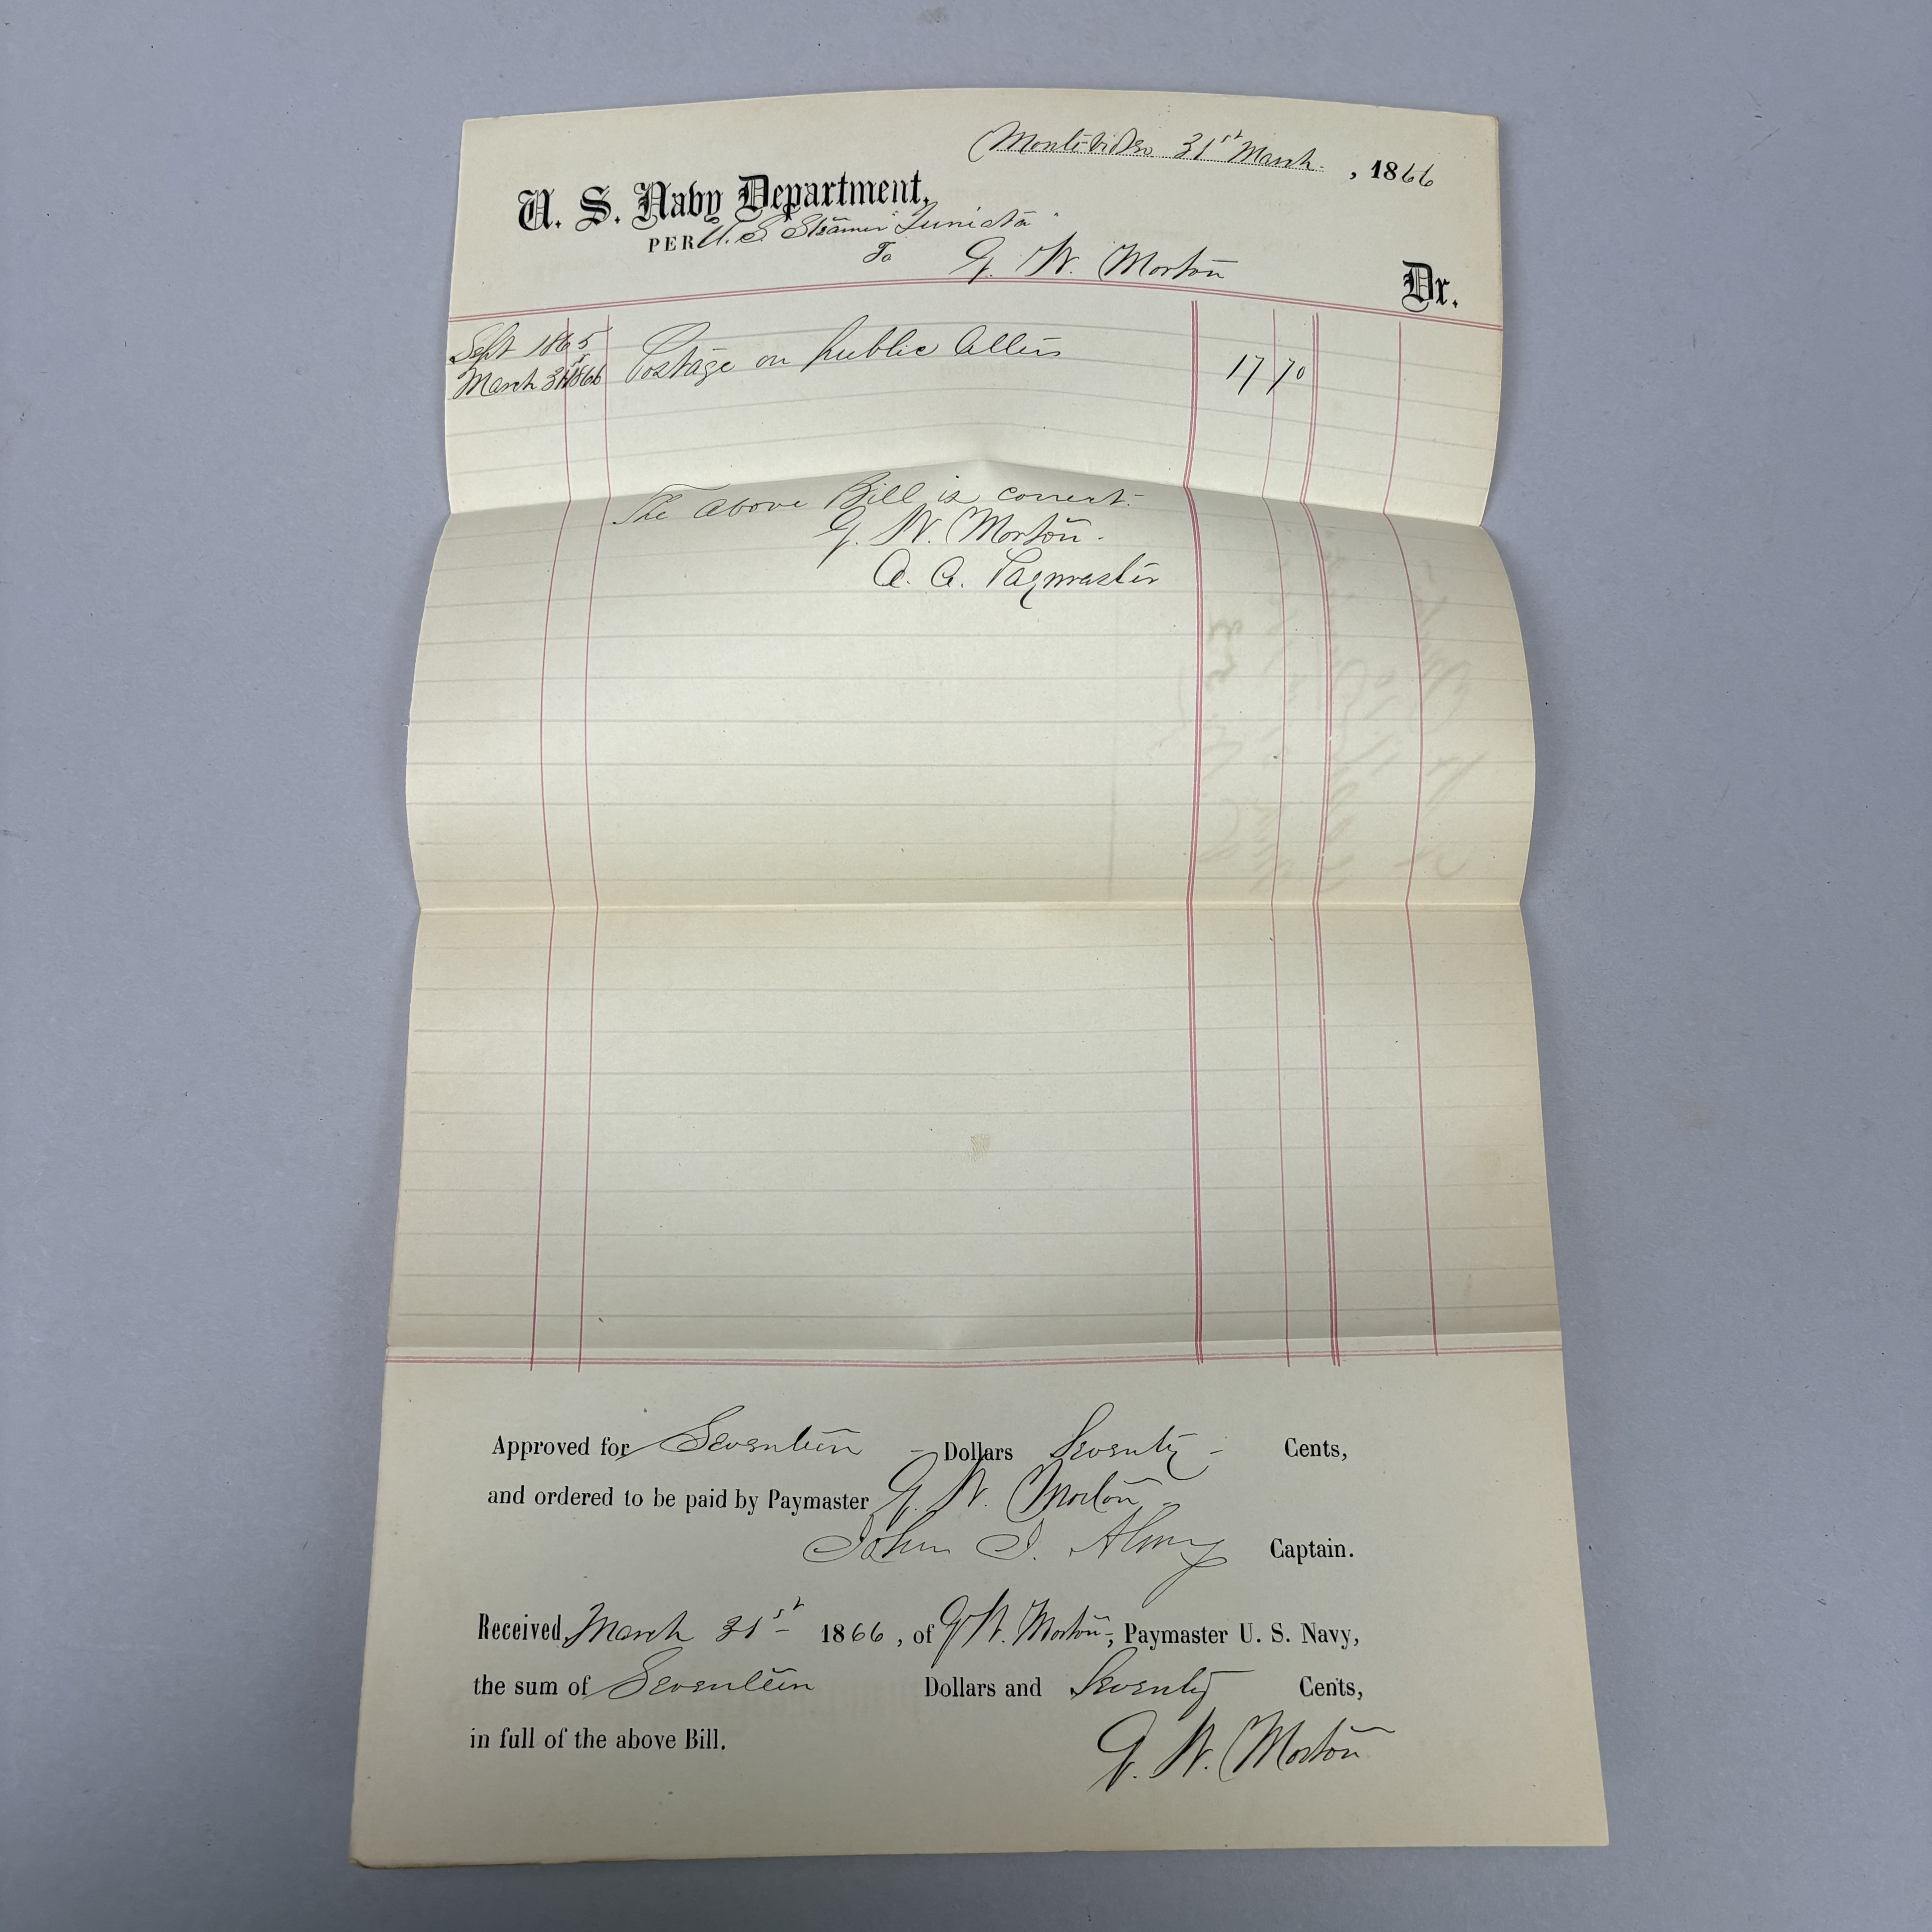 Montevideo 31st March. , 1866
U. S. Navy Department,
PER U. S. Steamer "Juniata"
To G. W. Morton
Dr.
Sept 1865
March 31st 1866 Postage on public letters 17 70
The above Bill is correct.
G. W. Morton.
A. A. Paymaster
Approved for Seventeen - Dollars Seventy - Cents,
and ordered to be paid by Paymaster G. W. Morton -
John J. Almy Captain.
Received, March 31st - 1866, of G. W. Morton -, Paymaster U. S. Navy,
the sum of Seventeen Dollars and Seventy Cents,
in full of the above Bill.
G. W. Morton